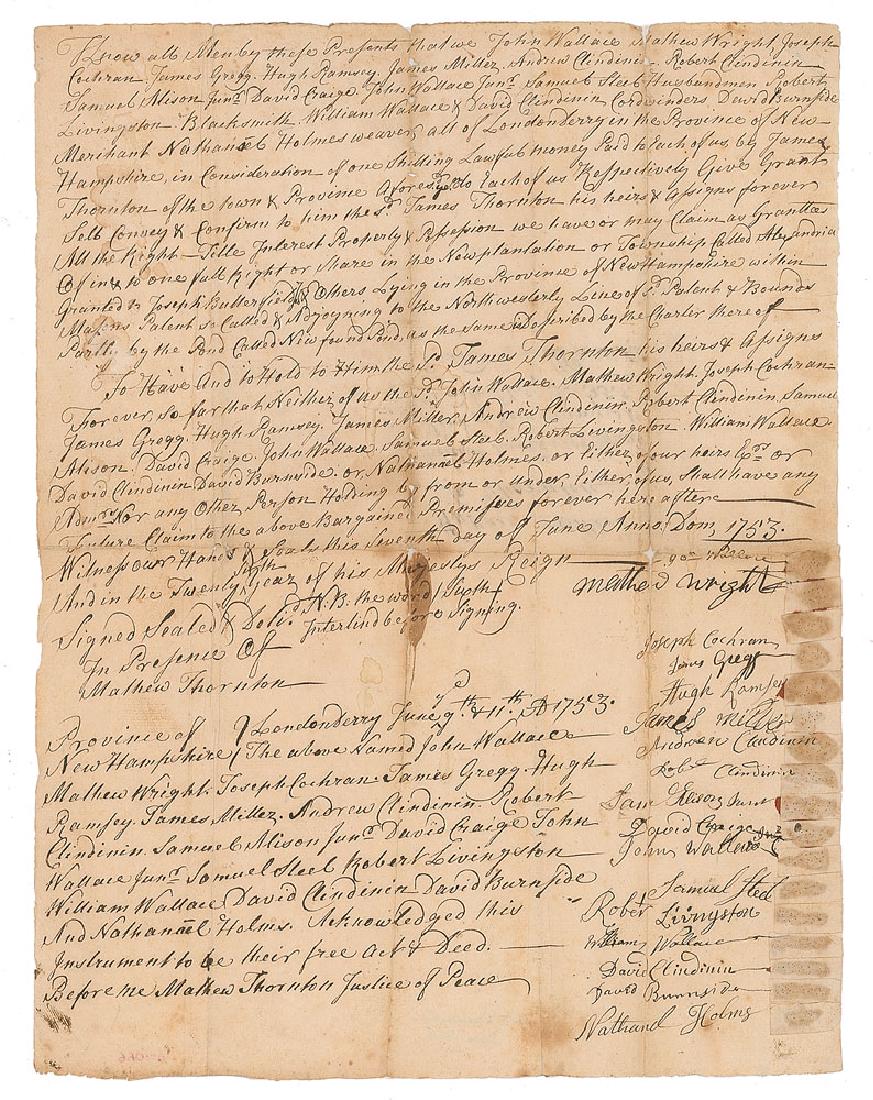 Know all Men by these Presents that we John Wallace Mathew Wright Joseph
Cochran James Gregg Hugh Ramsey James Miller Andrew Clindinin Robert Clindinin
Samuel Alison Junr. David Craige John Wallace Junr. Samuel Steel Husbandmen Robert
Livingston Blacksmith William Wallace & David Clindinin Cordwinders David Burnside
Merchant Nathanael Holmes weaver, all of Londonderry in the Province of New
Hampshire, in Consideration of one Shilling Lawfull money Paid to Each of us, by James
Thornton of the town & Province Aforesd. do Each of us Respectively Give Grant
Sell Convey & Confirm to him the sd. James Thornton his heirs & Assigns forever
All the Right Title Interest Property & Possession we have or may Claim as Grantees
Of in & to one full Right or Share in the New plantation or Township Called Alexandria
Granted to Joseph Butterfield & Others Lying in the Province of New Hampshire within
Masons Patent so Called & Adjoyning to the Northwesterly Line of sd. Patent & Bounds
Partly by the Pond Called New found Pond, as the same is Described by the Charter there of
To Have And to Hold to Him the sd. James Thornton his heirs & Assigns
Forever, so far that Neither of us the sd. John Wallace. Mathew Wright. Joseph Cochran
James Gregg. Hugh Ramsey. James Miller. Andrew Clindinin. Robert Clindinin. Samuel
Alison. David Craige. John Wallace. Samuel Steel. Robert Livingston. William Wallace.
David Clindinin David Burnside. or, Nathanael Holmes. or Either of our heirs Exrs. or
Admrs. Nor any Other Person Holding by from or under, Either, of us, Shall have any
Future Claim to the above Bargained Premises forever here after
Witness our Hands & Seals this Seventh day of June Anno: Dom, 1753.
And in the Twenty Sixth Year of his Majestys Reign
Jon Wallace
Mathew Wright
Signed Sealed & Delivd. N.B. the word Sixth
Interlind before Signing.
In Presence Of
Mathew Thornton
Joseph Cochran
James Gregg
Hugh Ramsey
James Miller
Andrew Clindinin
Robt Clindinin
Sam Elison Junr
David Craige
John Wallace Jur
Samuel Steel
Robert Livingston
William Wallace
David Clindinin
David Burnside
Nathanel Holms
Province of
New Hampshire } Londonderry June ye 9th. & 11th. AD 1753.
The above Named John Wallace
Mathew Wright. Joseph Cochran. James Gregg. Hugh
Ramsey. James Miller. Andrew Clindinin. Robert
Clindinin. Samuel Alison Junr. David Craige John
Wallace Junr. Samuel Steel Robert Livingston
William Wallace David Clindinin David Burnside
And Nathanael Holms. Acknowledged this
Instrument to be their free Act & Deed.
Before me Mathew Thornton Justice of Peace